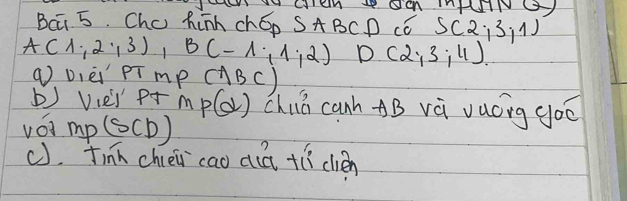 Bài 5. Cho hình chóp SABCD có S(2;3;1)
A(1;2;3), B(-1;1;2) D(2;3;4).
a) viết PT mp (ABC)
b) Viết PT mp(α) chứa cạnh AB và vuông góc
với mp (SCD)
c). Tính chiều cao của tứ diện